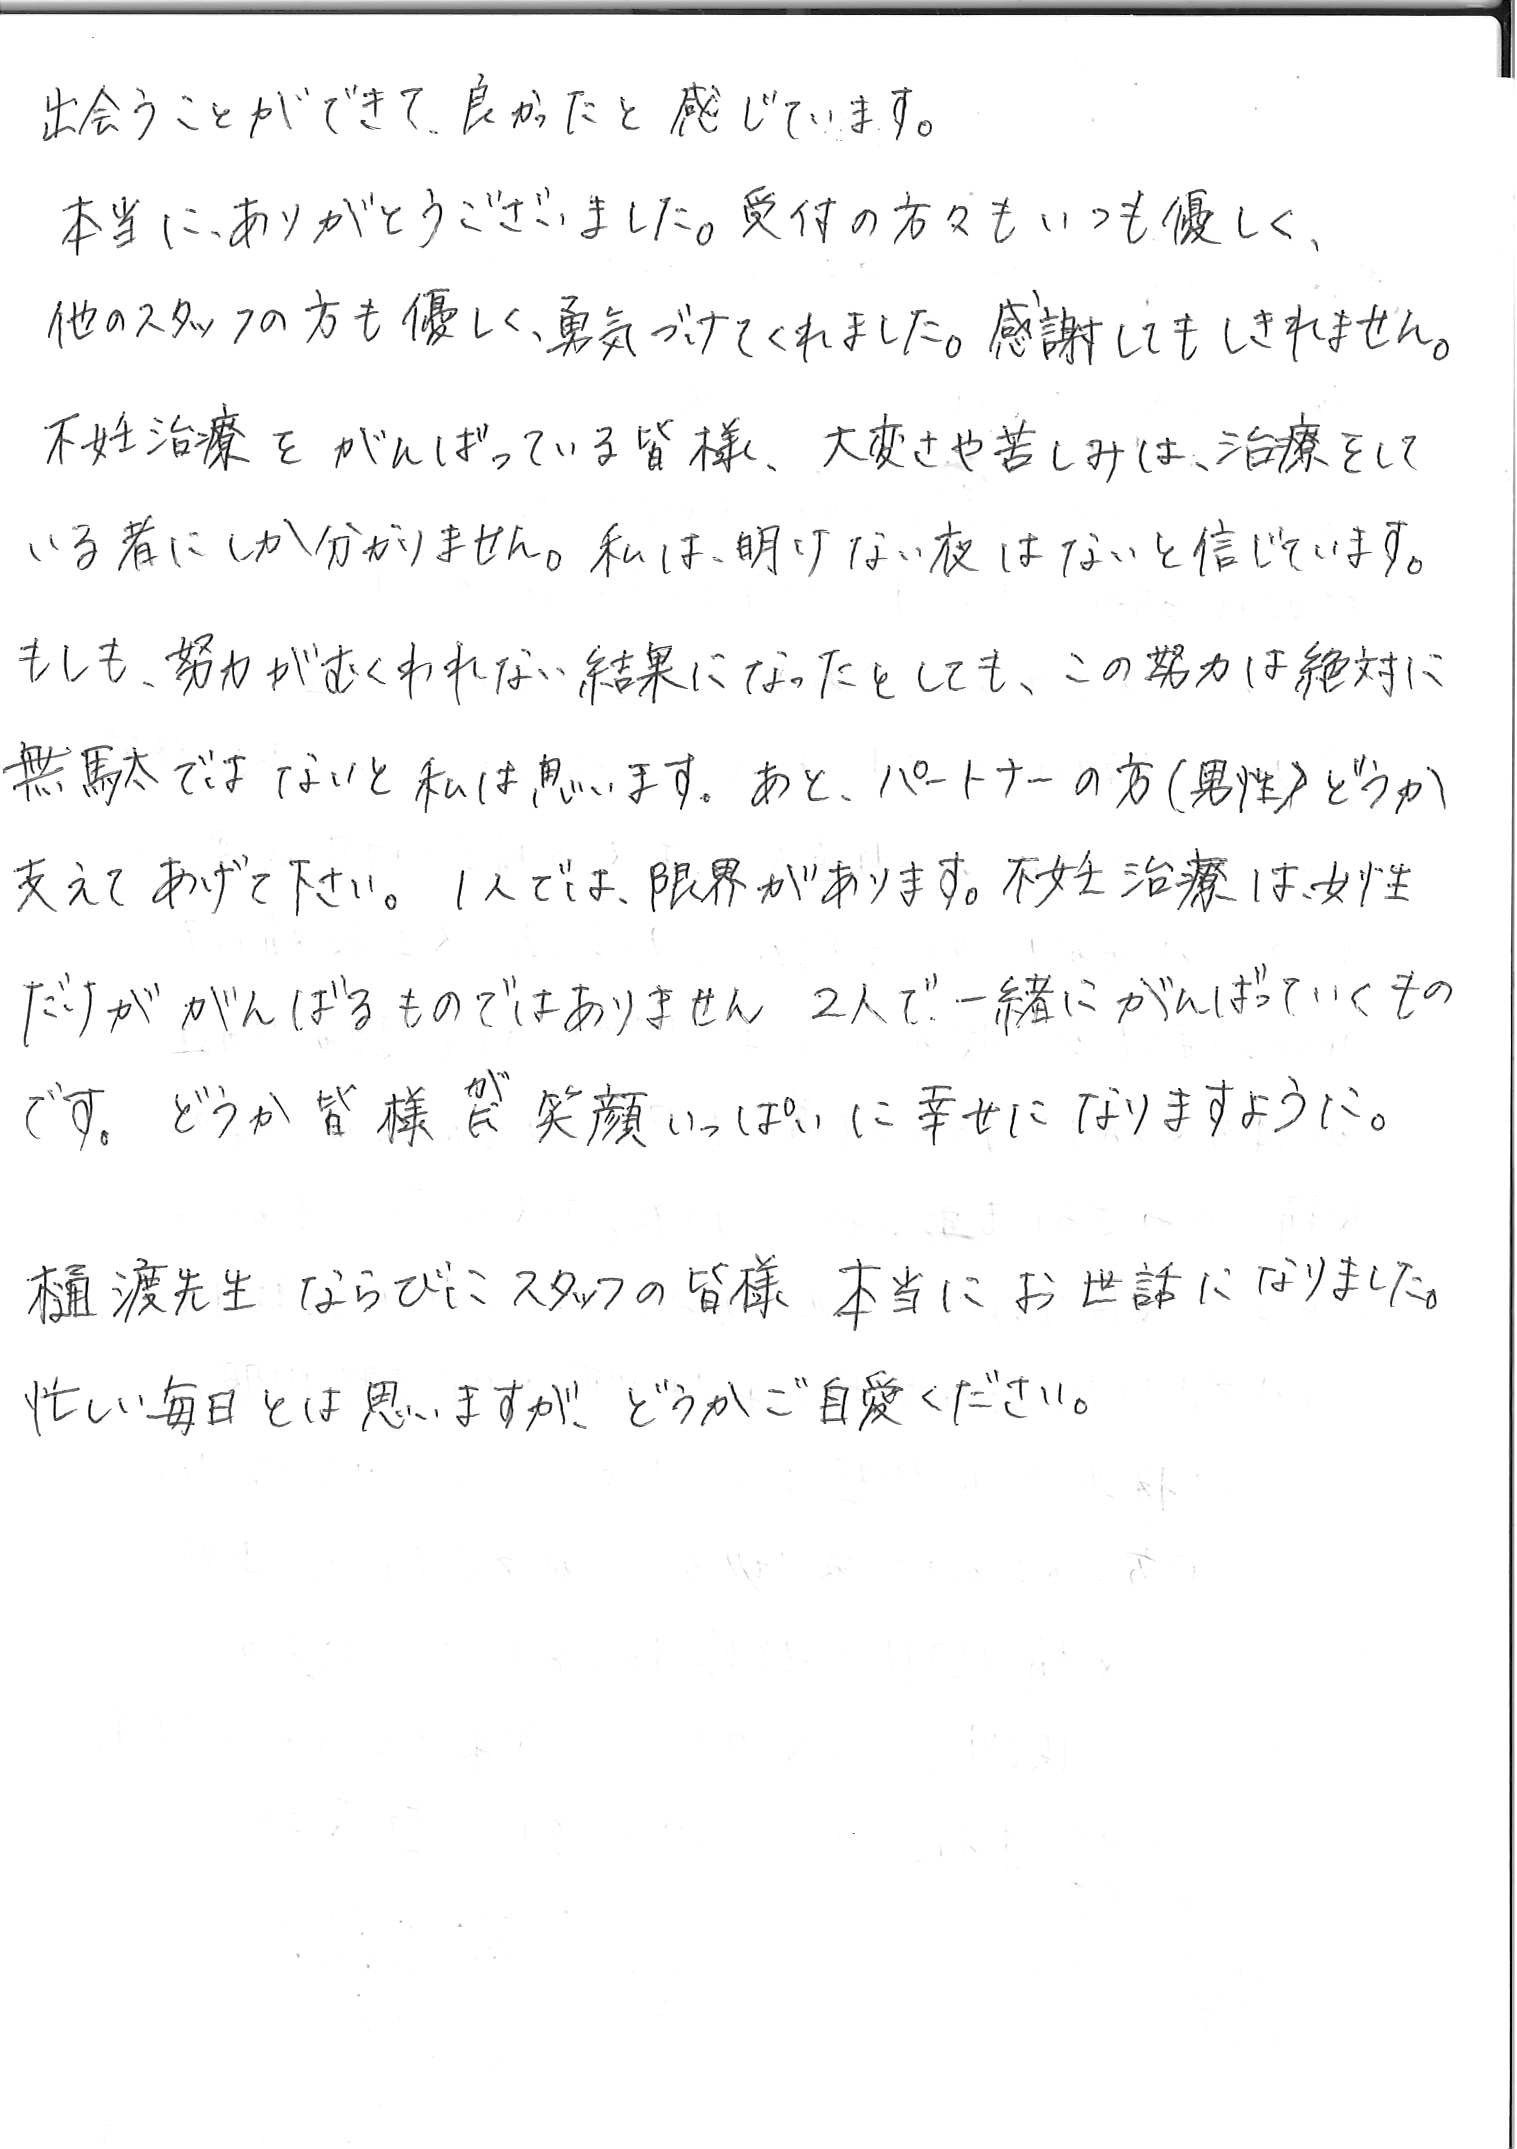 出会うことができて、良かったと感じています。
本当に、ありがとうございました。受付の方々もいつも優しく、
他のスタッフの方も優しく、勇気づけてくれました。感謝してもしきれません。
不妊治療をがんばっている皆様、大変さや苦しみは、治療をして
いる者にしか分かりません。私は、明けない夜はないと信じています。
もしも、努力がむくわれない結果になったとしても、この努力は絶対に
無駄ではないと私は思います。あと、パートナーの方(男性)どうか
支えてあげて下さい。1人では、限界があります。不妊治療は、女性
だけががんばるものではありません 2人で、一緒にがんばっていくもの
です。どうか皆様が笑顔いっぱいに幸せになりますように。
樋渡先生 ならびにスタッフの皆様 本当にお世話になりました。
忙しい毎日とは思いますが、どうかご自愛ください。